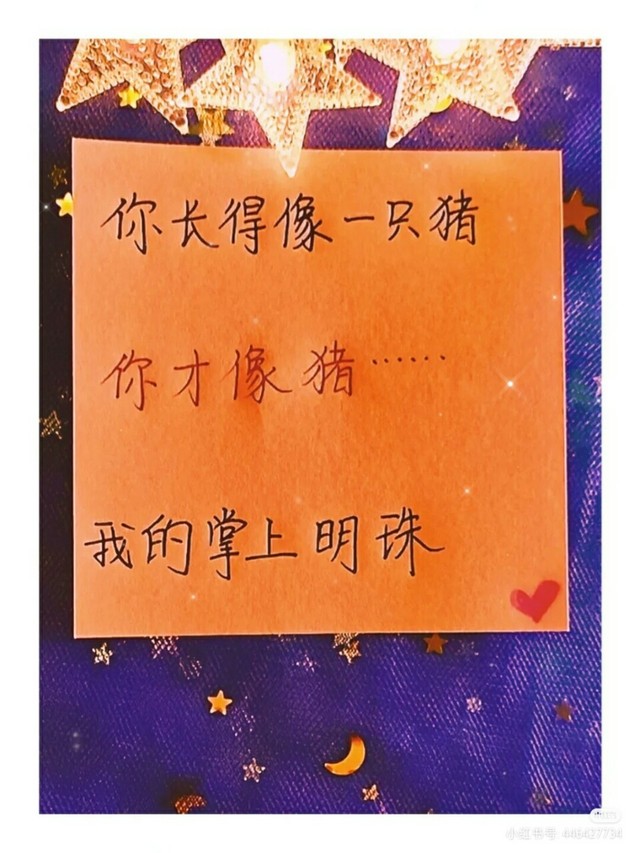 你长得像一只猪
你才像猪……
我的掌上明珠
小红书号: 448427734